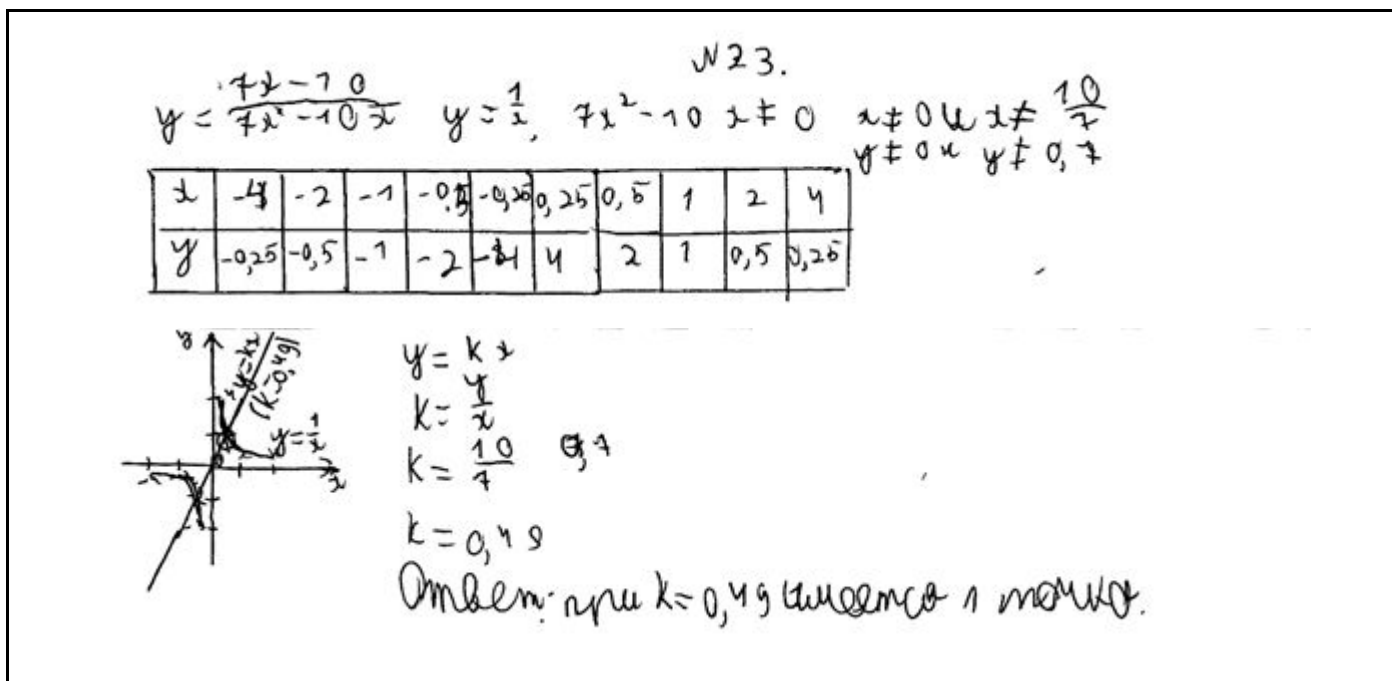 №23.
y = (7x - 10)/(7x² - 10x)   y = 1/x,   7x² - 10x ≠ 0   x ≠ 0 и x ≠ 10/7
y ≠ 0 и y ≠ 0,7
x | -4 | -2 | -1 | -0,5 | -0,25 | 0,25 | 0,5 | 1 | 2 | 4
y | -0,25 | -0,5 | -1 | -2 | -4 | 4 | 2 | 1 | 0,5 | 0,25
y
y=kx
(k=0,49)
y = 1/x
x
y = kx
k = y/x
k = 10/7   0,7
k = 0,49
Ответ: при k = 0,49 имеется 1 точка.